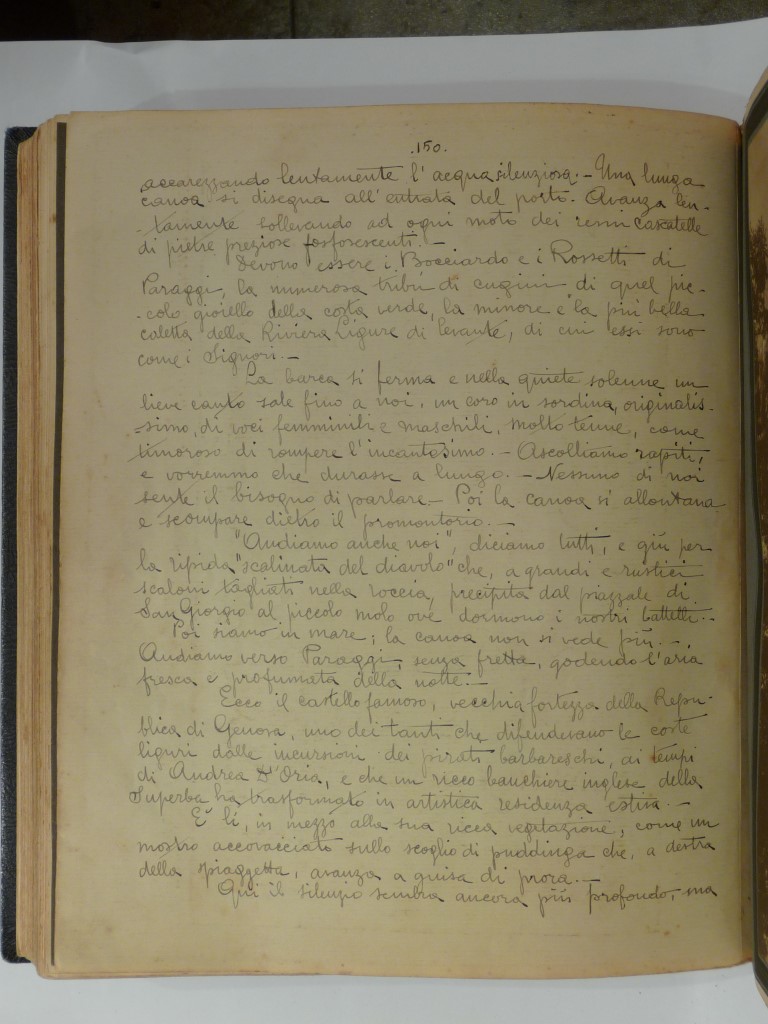 .150.
accarezzando lentamente l'acqua silenziosa. - Una lunga
canoa si disegna all'entrata del porto. Avanza len-
-tamente sollevando ad ogni moto dei remi cascatelle
di pietre preziose fosforescenti. -
Devono essere i Bocciardo e i Rossetti di
Paraggi, la numerosa tribù di cugini di quel pic-
-colo gioiello della costa verde, la minore e la più bella
caletta della Riviera Ligure di levante, di cui essi sono
come i Signori. -
La barca si ferma e nella quiete solenne un
lieve canto sale fino a noi, un coro in sordina, originalis-
-simo, di voci femminili e maschili, molto tenue, come
timoroso di rompere l'incantesimo. - Ascoltiamo rapiti,
e vorremmo che durasse a lungo. - Nessuno di noi
sente il bisogno di parlare. - Poi la canoa si allontana
e scompare dietro il promontorio. -
"Andiamo anche noi", diciamo tutti, e giù per
la ripida "scalinata del diavolo" che, a grandi e rustici
scaloni tagliati nella roccia, precipita dal piazzale di
San Giorgio al piccolo molo ove dormono i nostri battelli. -
Poi siamo in mare; la canoa non si vede più. -
Andiamo verso Paraggi, senza fretta, godendo l'aria
fresca e profumata della notte. -
Ecco il castello famoso, vecchia fortezza della Repu-
blica di Genova, uno dei tanti che difendevano le coste
liguri dalle incursioni dei pirati barbareschi, ai tempi
di Andrea D'Oria, e che un ricco banchiere inglese della
Superba ha trasformato in artistica residenza estiva. -
E' lì, in mezzo alla sua ricca vegetazione, come un
mostro accovacciato sullo scoglio di puddinga che, a destra
della spiaggetta, avanza a guisa di prora. -
Qui il silenzio sembra ancora più profondo, ma